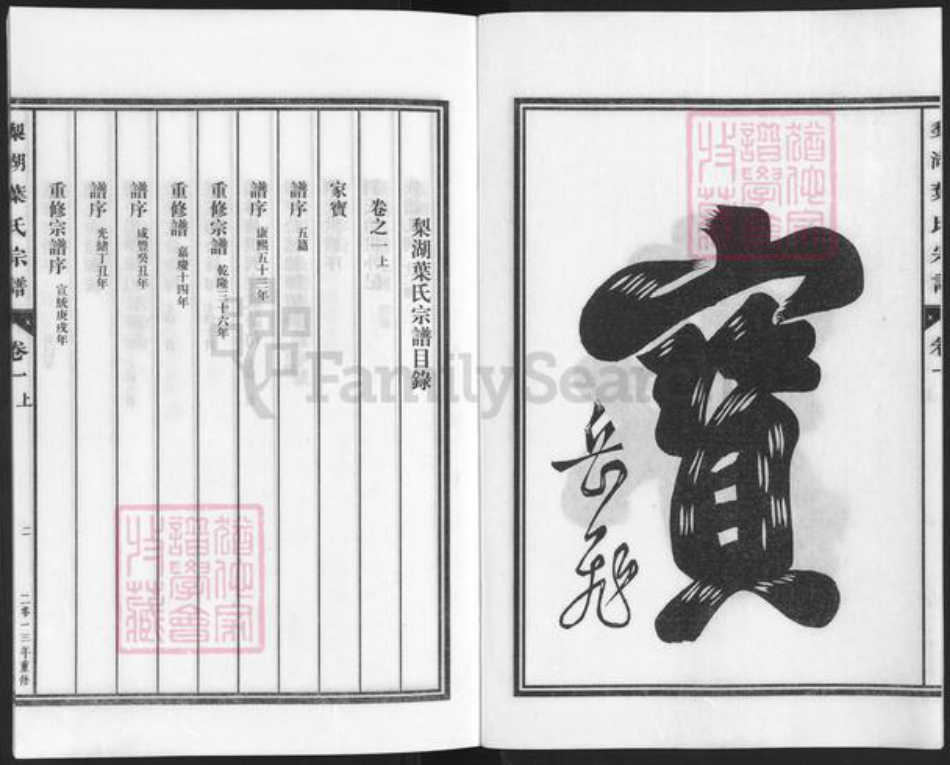 梨湖葉氏宗譜
卷一
寶
岳飛
猶他家
譜學會
收藏
梨湖葉氏宗譜目錄
卷之一上
家寶
譜序 五篇
譜序 康熙五十三年
重修宗譜 乾隆三十六年
重修譜 嘉慶十四年
譜序 咸豐癸丑年
譜序 光緒丁丑年
重修宗譜序 宣統庚戌年
梨湖葉氏宗譜
卷一上
二
二零一三年重修
猶他家
譜學會
收藏
FamilySearch